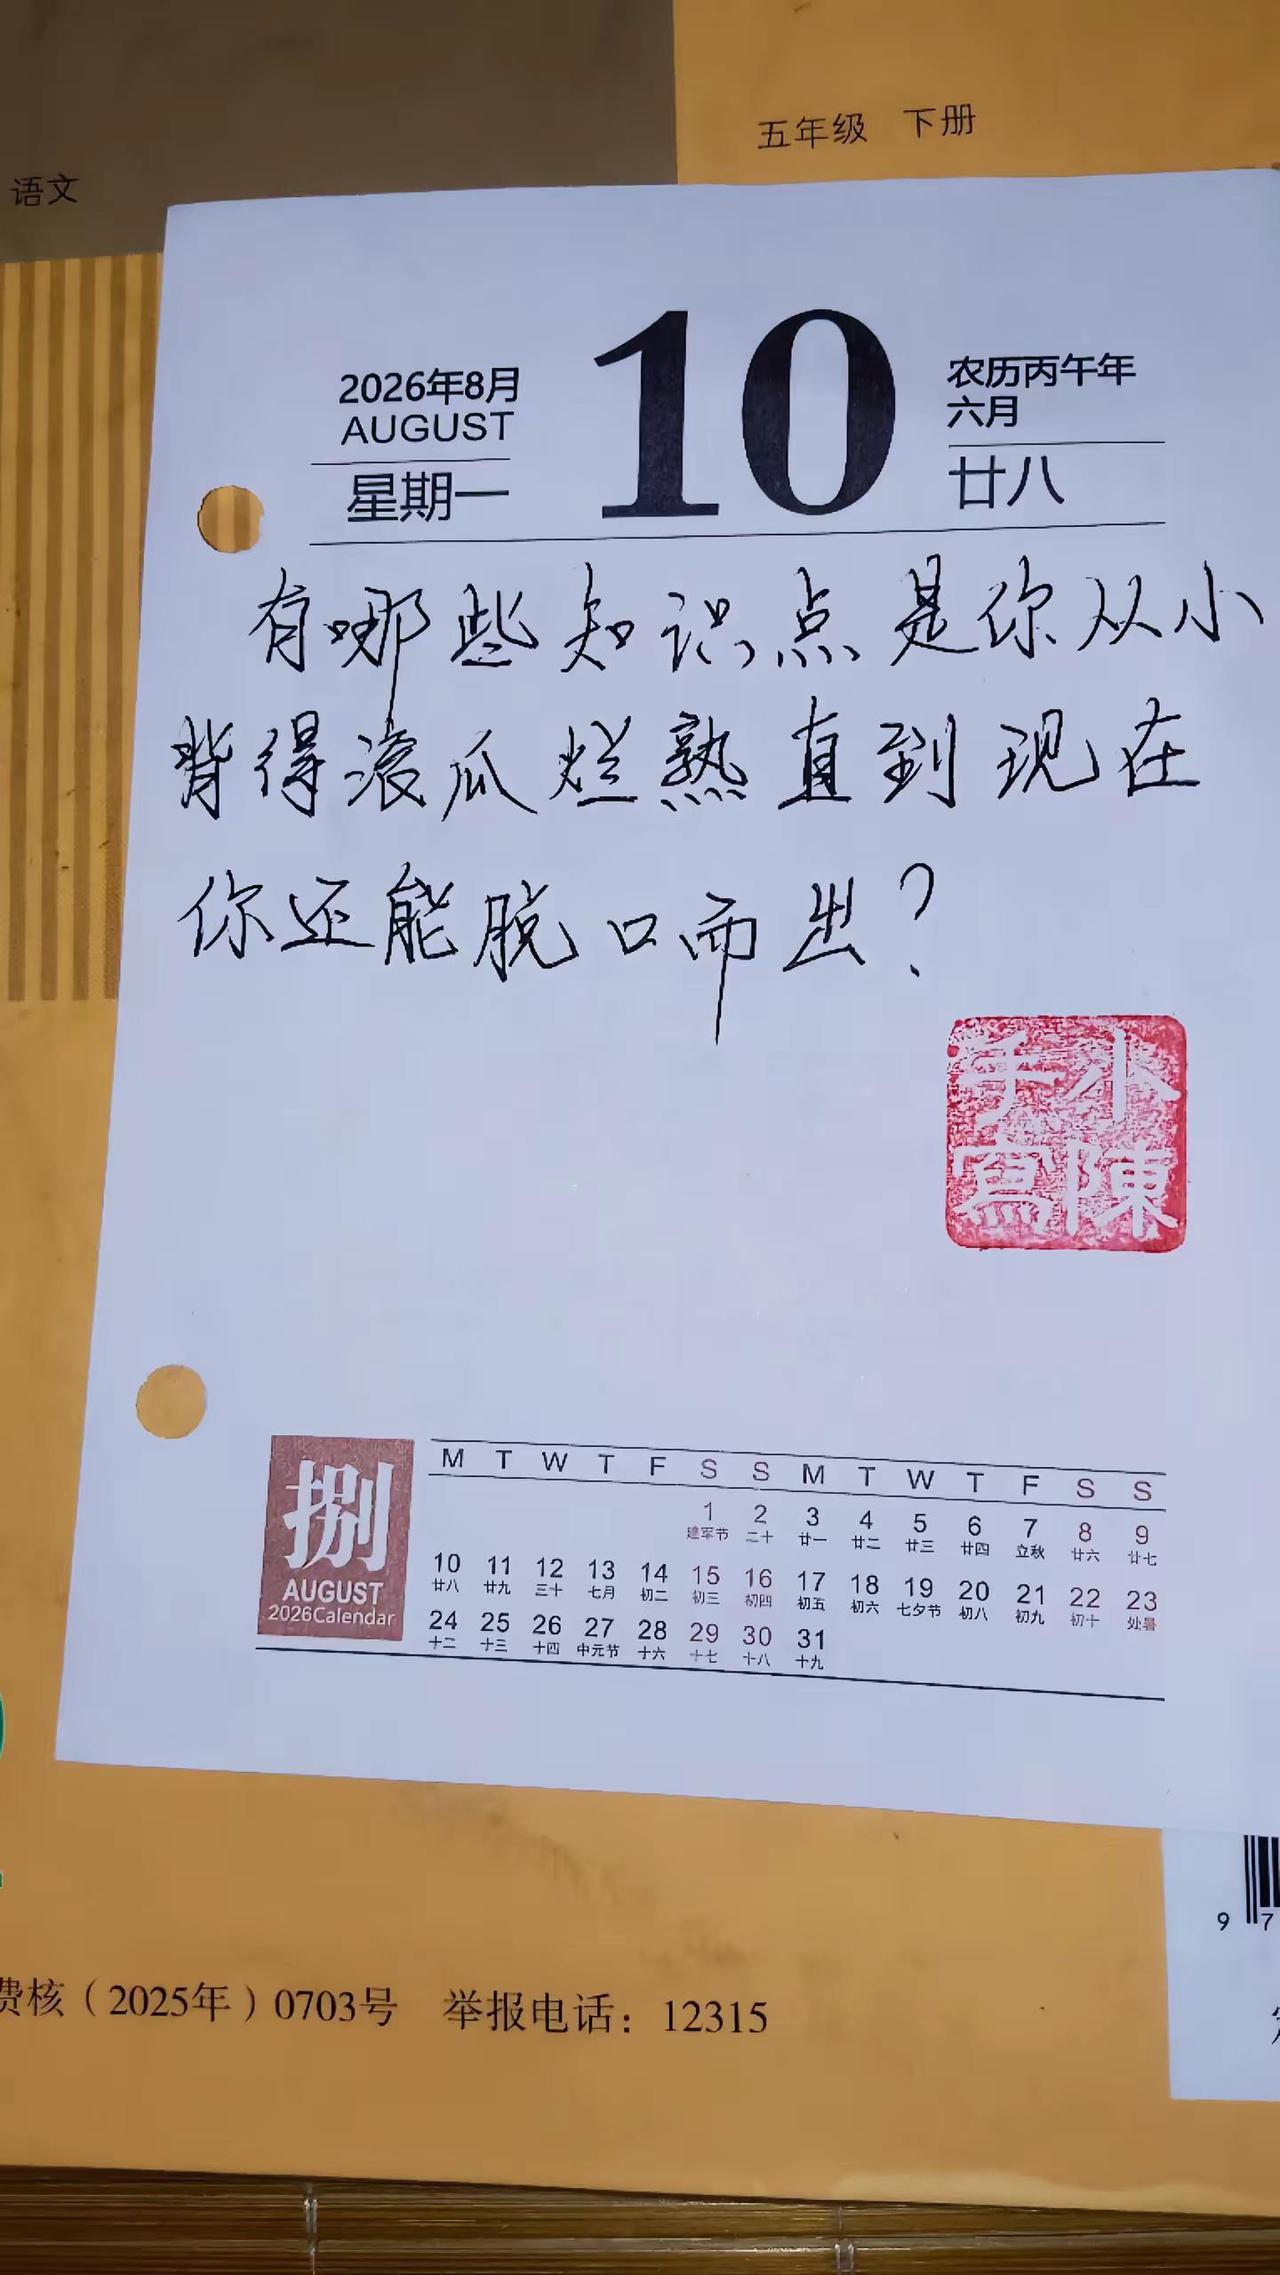 语文
五年级 下册
2026年8月
AUGUST
星期一
10
农历丙午年
六月
廿八
有哪些知识点是你从小
背得滚瓜烂熟直到现在
你还能脱口而出?
小陳
手寫
捌
AUGUST
2026Calendar
M T W T F S S M T W T F S S
1 2 3 4 5 6 7 8 9
建军节 二十 廿一 廿二 廿三 廿四 立秋 廿六 廿七
10 11 12 13 14 15 16 17 18 19 20 21 22 23
廿八 廿九 三十 七月 初二 初三 初四 初五 初六 七夕节 初八 初九 初十 处暑
24 25 26 27 28 29 30 31
十二 十三 十四 中元节 十六 十七 十八 十九
9 7
费核（2025年）0703号 举报电话：12315